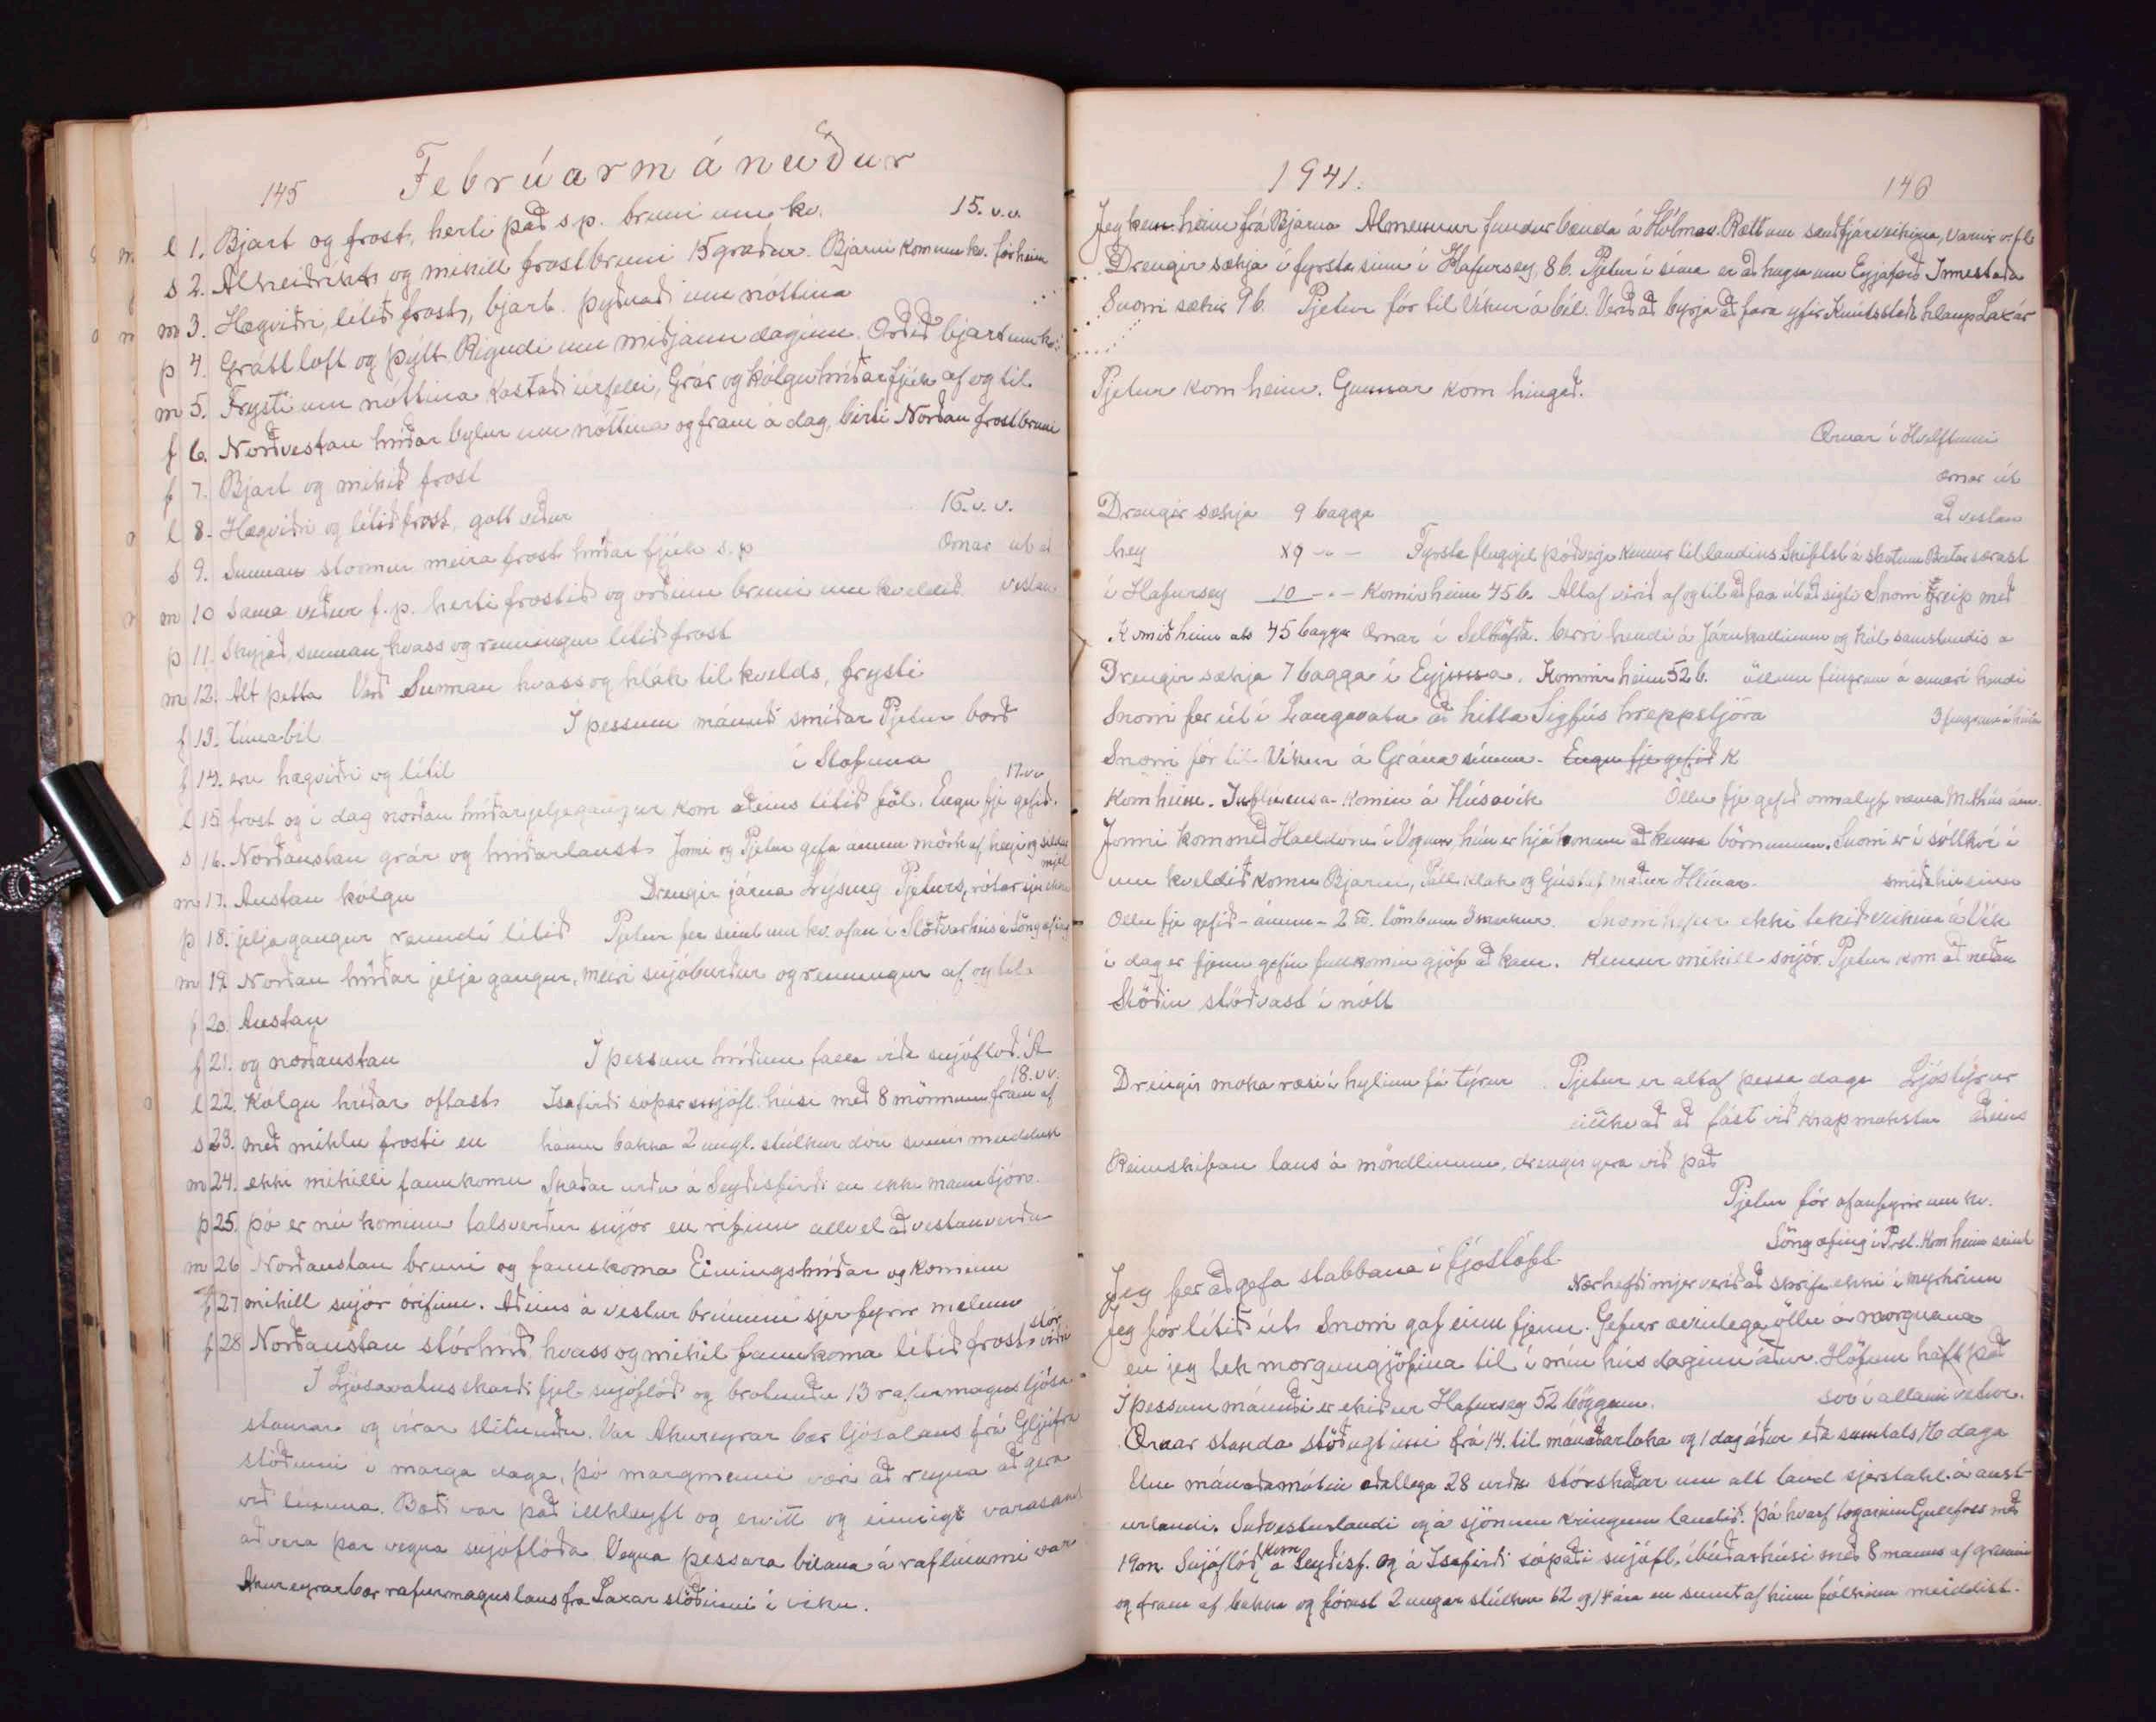 145 Febrúarmánuður
l 1. Bjart og frost, herti það s.p. bruni um kv. 15. v.v.
s 2. og mikill frostbruni 15 gráður. Bjarni kom um kv. fór heim
m 3. Hægviðri, lítið frost, bjart. Þyðnaði um nóttina
þ 4. Grátt loft og þýtt. Rigndi um miðjann daginn. Orðið bjart um kv.
m 5. Frysti um nóttina kastaði úr jeli, Grár og kólgu hríðarfjúk af og til.
f 6. Norðvestan hríðar bylur um nóttina og fram á dag, birti Norðan frostbruni
f 7. Bjart og mikið frost
l 8. Hægviðri og lítið frost, gott veður 16. v. v.
s 9. Sunnan stormur meira frost hríðar fjúk s.p Ornar út að
m 10 Sama veður f.p. herti frostið og orðinn bruni um kveldið vestan
þ 11. Skýjað, sunnan, hvass og renningur lítið frost
m 12. Alt þetta Varð Sunnan hvass og hláka til kvelds, frysti
f 13. tímabil Í þessum mánuði smíðar Pjetur borð
f 14. eru hægviðri og lítil í Stofuna
l 15 frost og í dag norðan hríðarjeljagangur kom aðeins lítið föl. Engu fje gefið. 17. vv
s 16. Norðaustan grár og hríðarlaust. Jonni og Pjetur gefa ánum mörk af heyi og síldar mjel
m 17. Austan kólgu Drengir járna Lýsing Pjeturs,
þ 18. jeljagangur renndi lítið Pjetur fer seint um kv. ofan í Stöðvarhús á Söngæfing
m 19. Norðan hríðar jelja gangur, meiri snjóburður og renningur af og til.
f 20. Austan
f 21. og norðaustan Í þessum hríðum falla víða snjóflóð. Á
l 22. Kólgu hríðar oftast Ísafirði sópar snjófl. húsi með 8 mönnum fram af 18. v v.
s 23. með miklu frosti en háum bakka 2 ungl. stúlkur dóu sumir meiddust
m 24. ekki mikilli fannkomu Skaðar urðu á Seyðisfirði en ekki manntjón.
þ 25. þó er nú kominn talsverður snjór en rifinn allvel að vestanverðu
m 26 Norðaustan bruni og fannkoma Einingshríðar og kominn
f 27 mikill snjór órifinn. Aðeins á vestur brúninni sjer fyrir melum
f 28 Norðaustan stórhríð hvass og mikil fannkoma lítið frost. stór viðri
Í Ljósavatnsskarði fjell snjóflóð og brotnuðu 13 rafurmagnsljósa-
staurar og vírar slitnuðu. Var Akureyrar bær ljósalaus frá Gljúfra
stöðinni í marga daga, þó margmenni væri að reyna að gera
við línuna. Bæði var það illkleyft og ervitt og einnigt varasamt
að vera þar vegna snjóflóða. Vegna þessara bilana á raflínunni var
Akureyrarbær rafurmagnslaus frá Laxár stöðinni í viku.
1941. 146
Jeg kem heim frá Bjarna. Almennur fundur bænda á Hólmav. Rætt um sauðfjárveikina, varnir o.fl.
Drengir sækja í fyrsta sinn í Hafursey, 8 b. Pjetur í síma er að hugsa um Eyjafjörð Innstaða
Snorri sækir 9 b. Pjetur fór til Víkur á bíl. Verið að byrja að fara yfir hlaup Laxár
Pjetur kom heim. Gunnar kom hingað.
Ornar í Hvilftunni
Ornar út
Drengir sækja 9 bagga að vestan
hey x9 -"- Fyrsta flugvjel þjóðverja kemur til landsins Skiftst á skotum Bretar særast
í Hafursey 10 -"- Komir heim 45 b. Altaf verið af og til að faa út að sigla Snorri greip með
Komið heim als 45 bagga Ornar í Selhöfða. berri hendi á Járnkallinum og kól samstundis á
Drengir sækja 7 bagga í Eyjuna. Komnir heim 52 b. öllum fingrum á annari hendi
Snorri fer út í Langavatn að hitta Sigfús hreppstjóra 3 fingrum á hinni
Snorri fór til Víkur á Grána sínum. Engu fje gefið K
Kom heim. Influensa komin á Húsavík Öllu fje gefið
Jonni kom með Halldóru í Vogum hún er hjá honum að kenna börnunum. Snorri er í sóttkví í
um kveldið komu Bjarni, Páll og Gústaf maður Hlínar. smiðshúsinu
Öllu fje gefið - ánum - 2 lömbum 3 merkur. Snorri hefur ekki tekið veikina á Vík
í dag er fjenu gefin fullkomin gjöf að kasta. Kemur mikill snjór. Pjetur kom að neðan
Stöðin stöðvast í nótt
Drengir moka ræsi í hylinn fá týrur Pjetur er altaf þessa daga Ljóstýrur
illkvað að fást við krapmokstur aðeins
Reimskífan laus á möndlinum, drengir gera við það
Pjetur fór ofanfyrir um kv.
Söngæfing í Prst. Kom heim seint
Jeg fer að gefa stabbana í fjóslofti Nær hefði mjer verið að skrifa ekki í myrkrinu
Jeg fór lítið út. Snorri gaf einn fjenu. Gefur ævinlega öllu á morgnana
en jeg tek morgungjöfina til í mín hús daginn áður. Höfum haft það
Í þessum mánuði er ekið úr Hafursey 52 böggum. svo í allann vetur.
Ornar standa stöðugt inni frá 14. til mánaðarloka og 1 dag áður eða samtals 16 daga
Um mánaðamótin aðallega 28 urðu stórskaðar um alt land sjerstakl. á aust-
urlandi. Suðvesturlandi og á sjónum kringum landið. Þá hvarf togarinn Gullfoss með
19 m. Snjóflóð kom á Seyðisf. og á Ísafirði sópaði snjófl. íbúðarhúsi með 8 manns af grunni
og fram af bakka og fórust 2 ungar stúlkur 12 og 14 ára en sumt af hinu fólkinu meiddist.